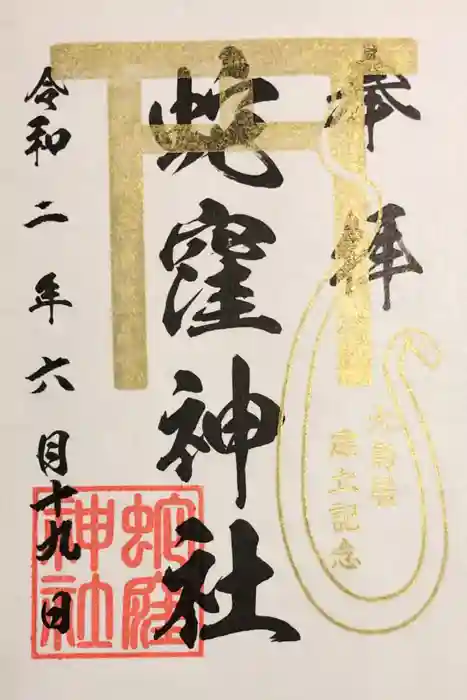 奉拝
大鳥居
建立記念
蛇窪神社
蛇窪
神社
令和二年六月十九日